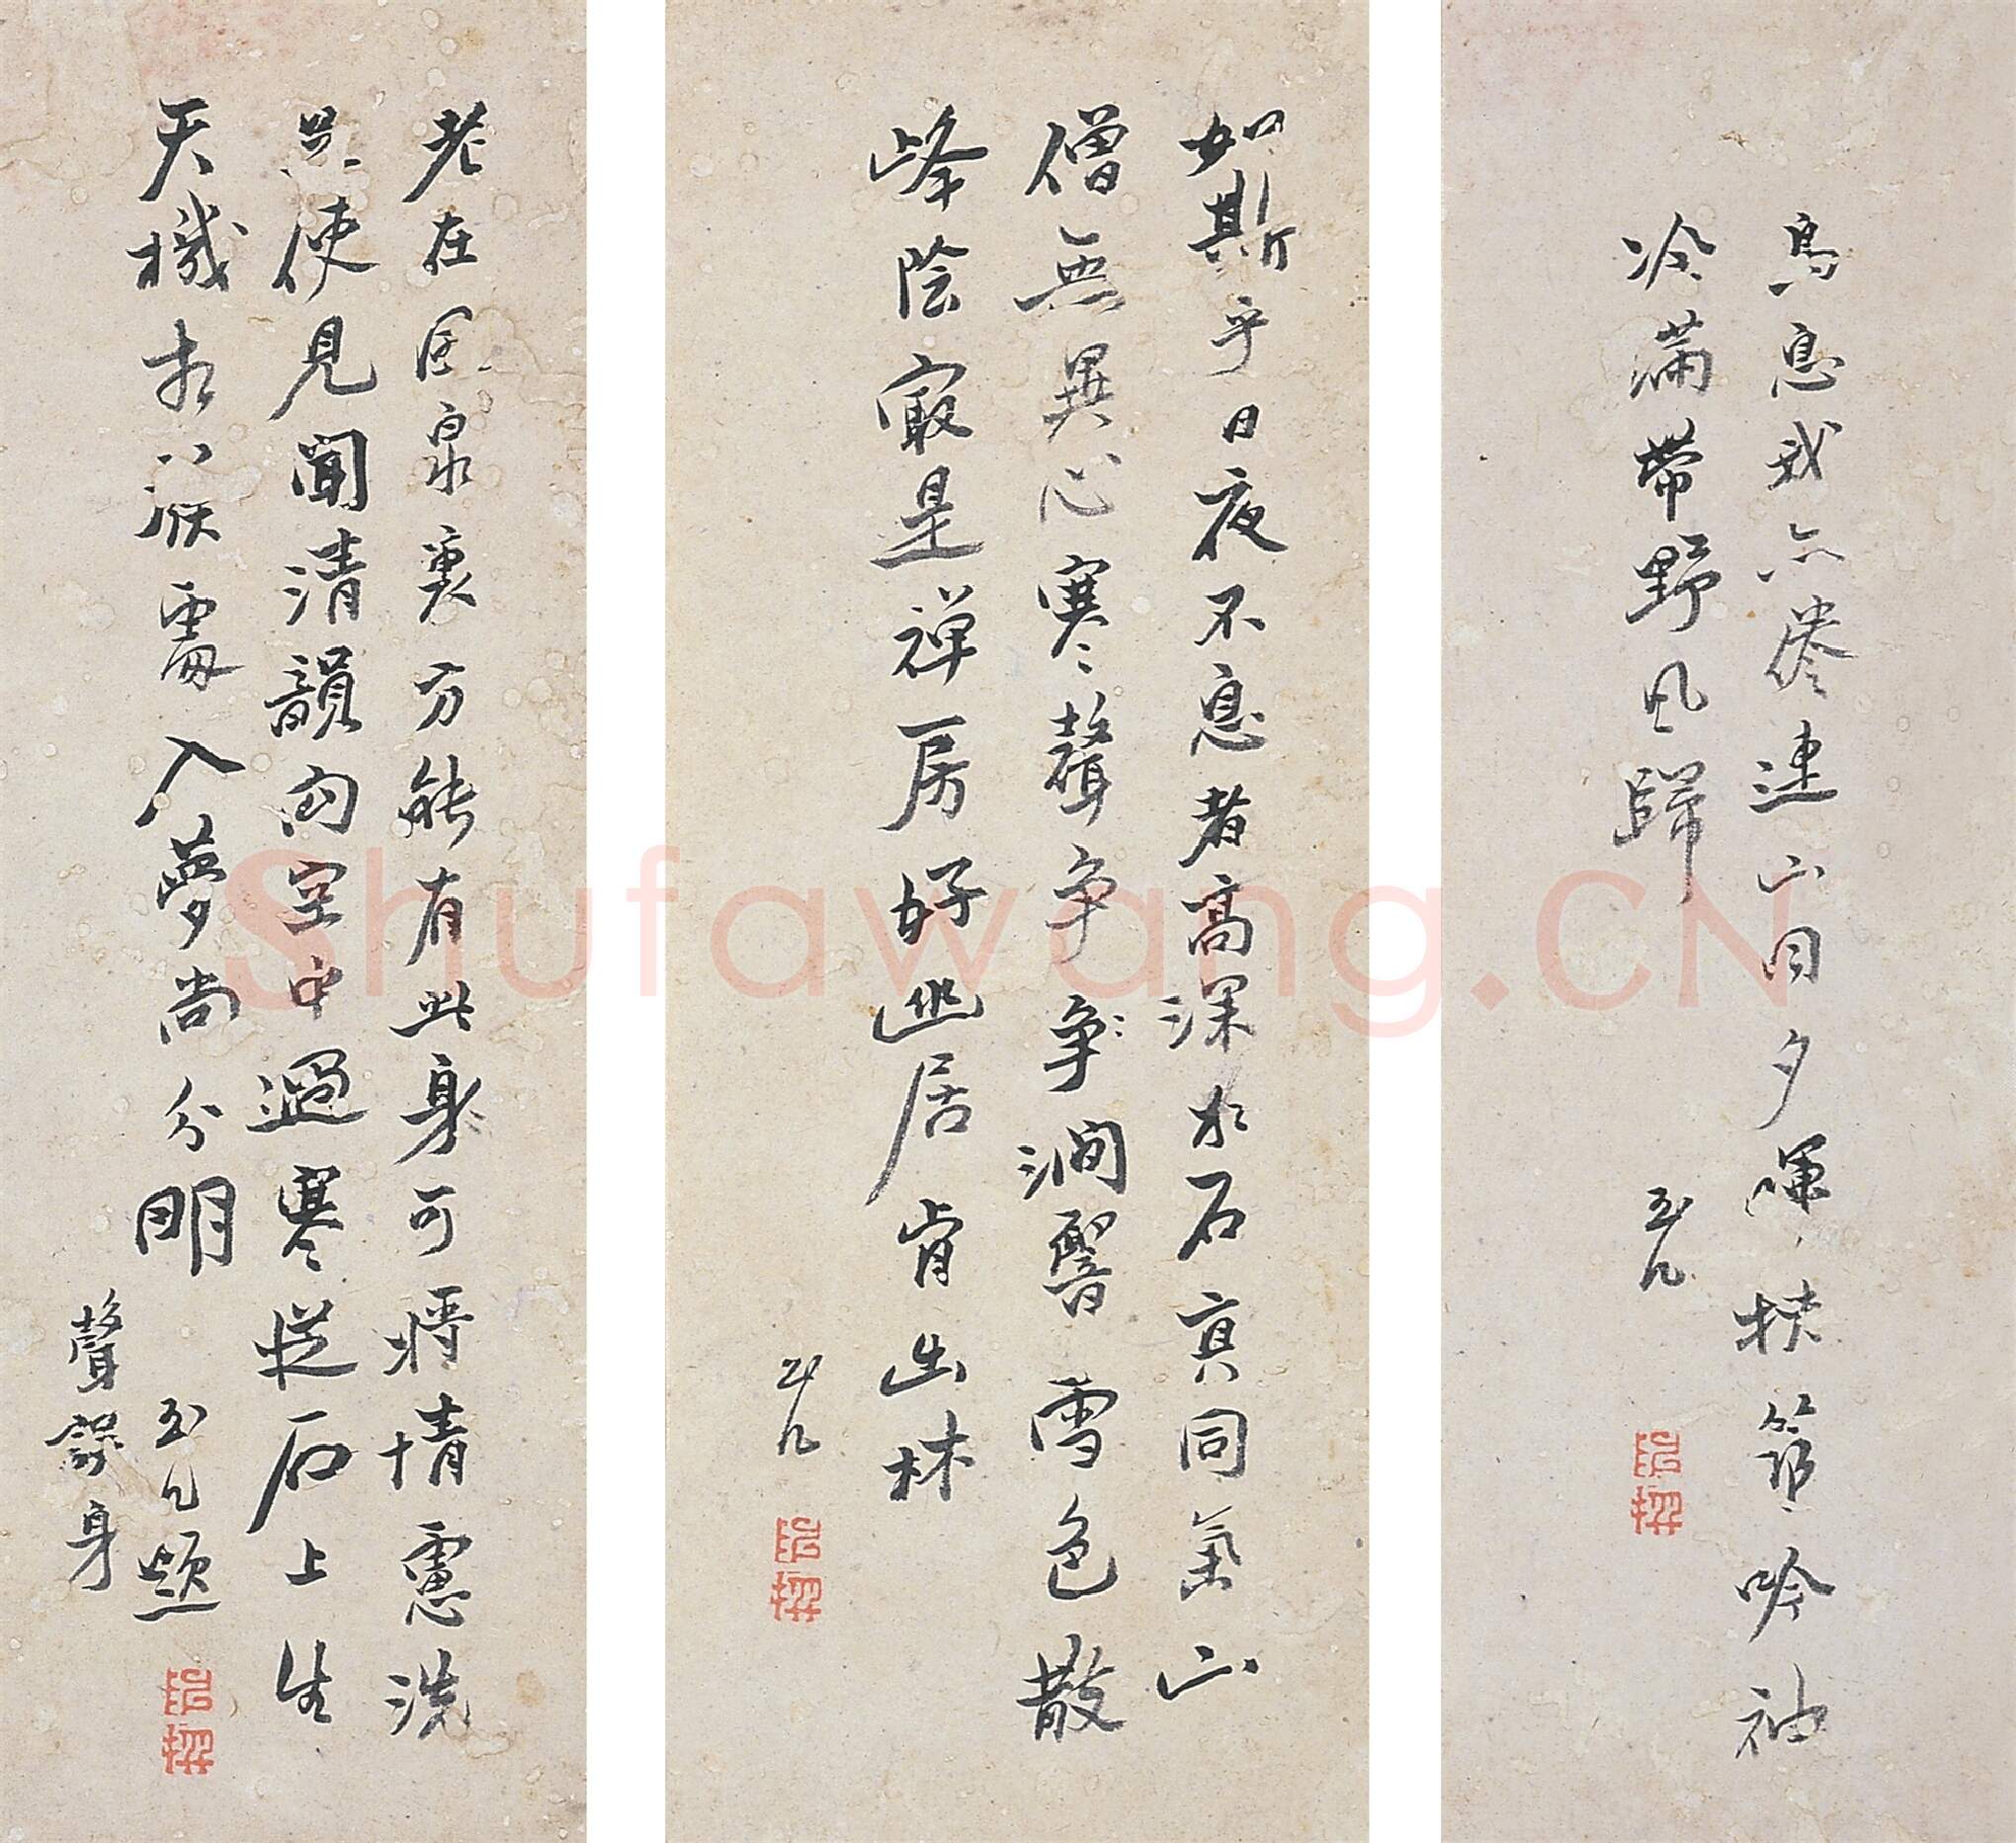 鳥息我亦倦連山自夕暉扶筇吟袖
冷滿帶野風歸
玉几
如斯乎日夜不息者高深於石真同氣山
僧無異心寒聲爭爭澗響雪色散
峰陰最是禪房好幽居肯出林
玉几
老在風泉裏方能有此身可將情慮洗
只使見聞清韻向空中過寒從石上生
天機處入夢尚分明 玉几題
聲誤身
Shufawang.CN